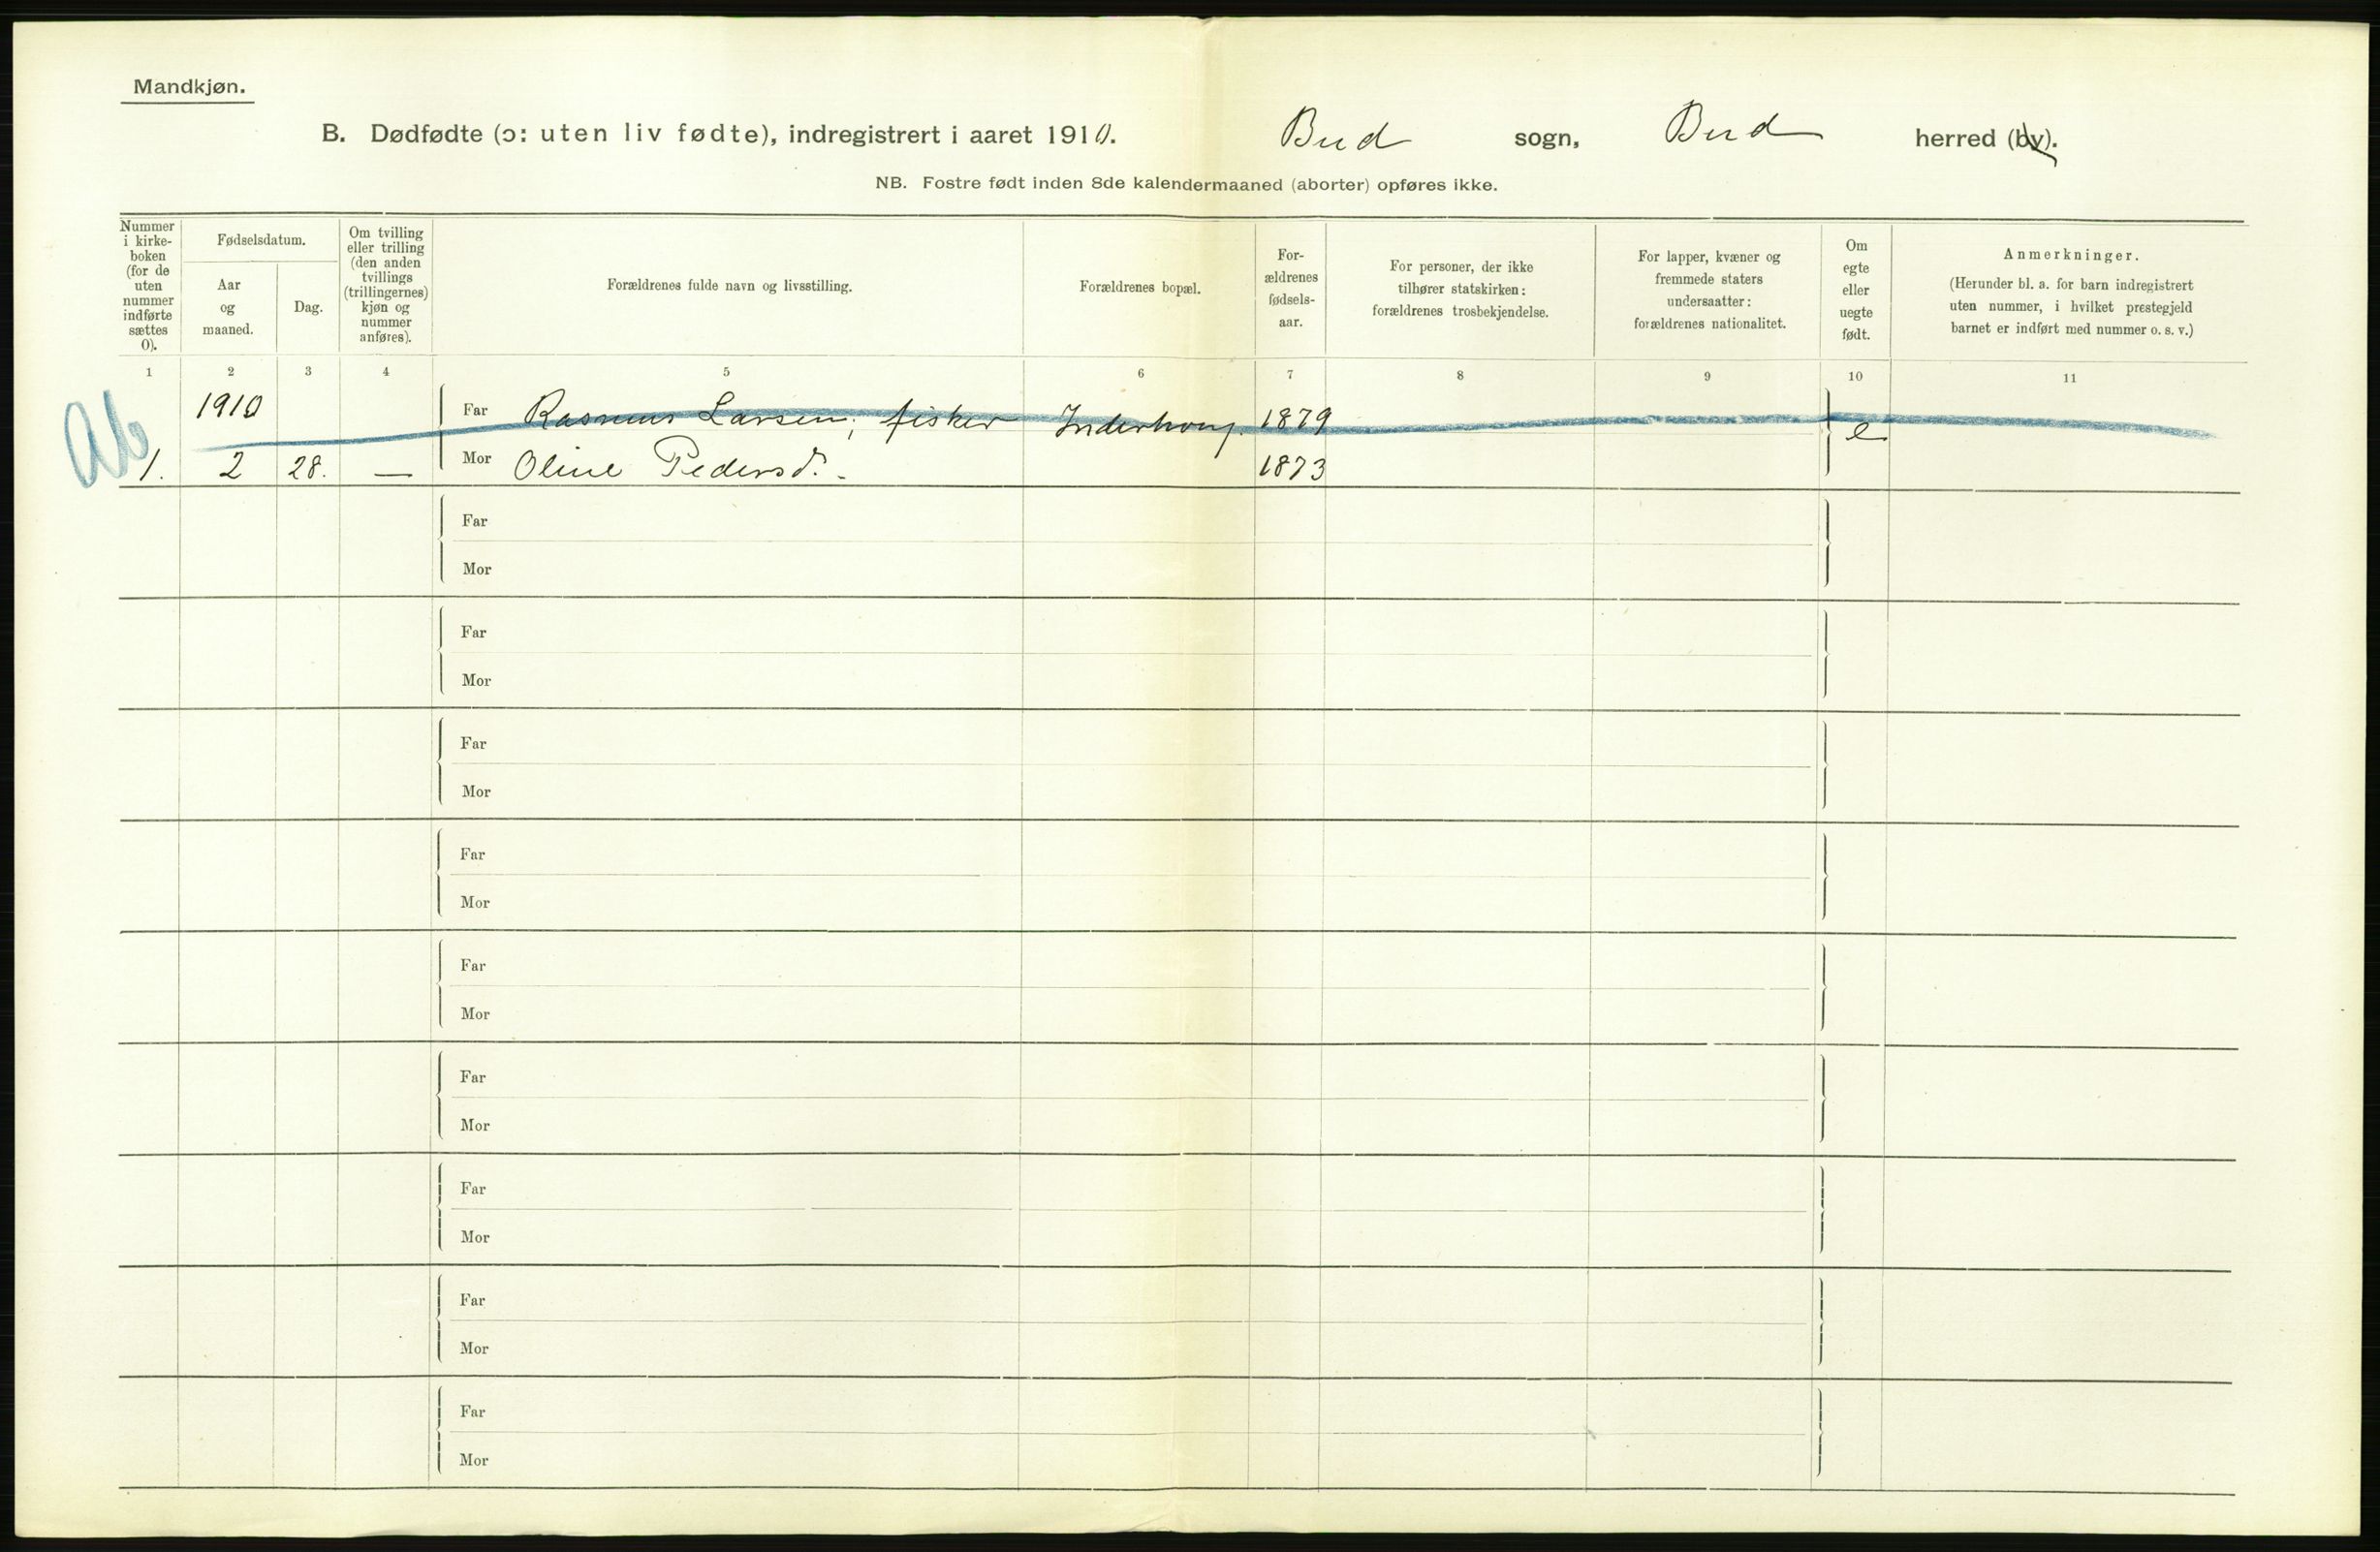 Mandkjøn.
B. Dødfødte (ɔ: uten liv fødte), indregistrert i aaret 1910. Bud sogn, Bud herred (by).
NB. Fostre født inden 8de kalendermaaned (aborter) opføres ikke.
Nummer
i kirke-
boken
(for de
uten
nummer
indførte
sættes
0).
Fødselsdatum.
Aar
og
maaned.
Dag.
Om tvilling
eller trilling
(den anden
tvillings
(trillingernes)
kjøn og
nummer
anføres).
Forældrenes fulde navn og livsstilling.
Forældrenes bopæl.
For-
ældrenes
fødsels-
aar.
For personer, der ikke
tilhører statskirken:
forældrenes trosbekjendelse.
For lapper, kvæner og
fremmede staters
undersaatter:
forældrenes nationalitet.
Om
egte
eller
uegte
født.
Anmerkninger.
(Herunder bl. a. for barn indregistrert
uten nummer, i hvilket prestegjeld
barnet er indført med nummer o. s. v.)
1 2 3 4 5 6 7 8 9 10 11
Ab
1910 Far Rasmus Larsen, fisker 1879 e
1. 2 28. — Mor Oline Pedersd. - 1873
Far
Mor
Far
Mor
Far
Mor
Far
Mor
Far
Mor
Far
Mor
Far
Mor
Far
Mor
Far
Mor